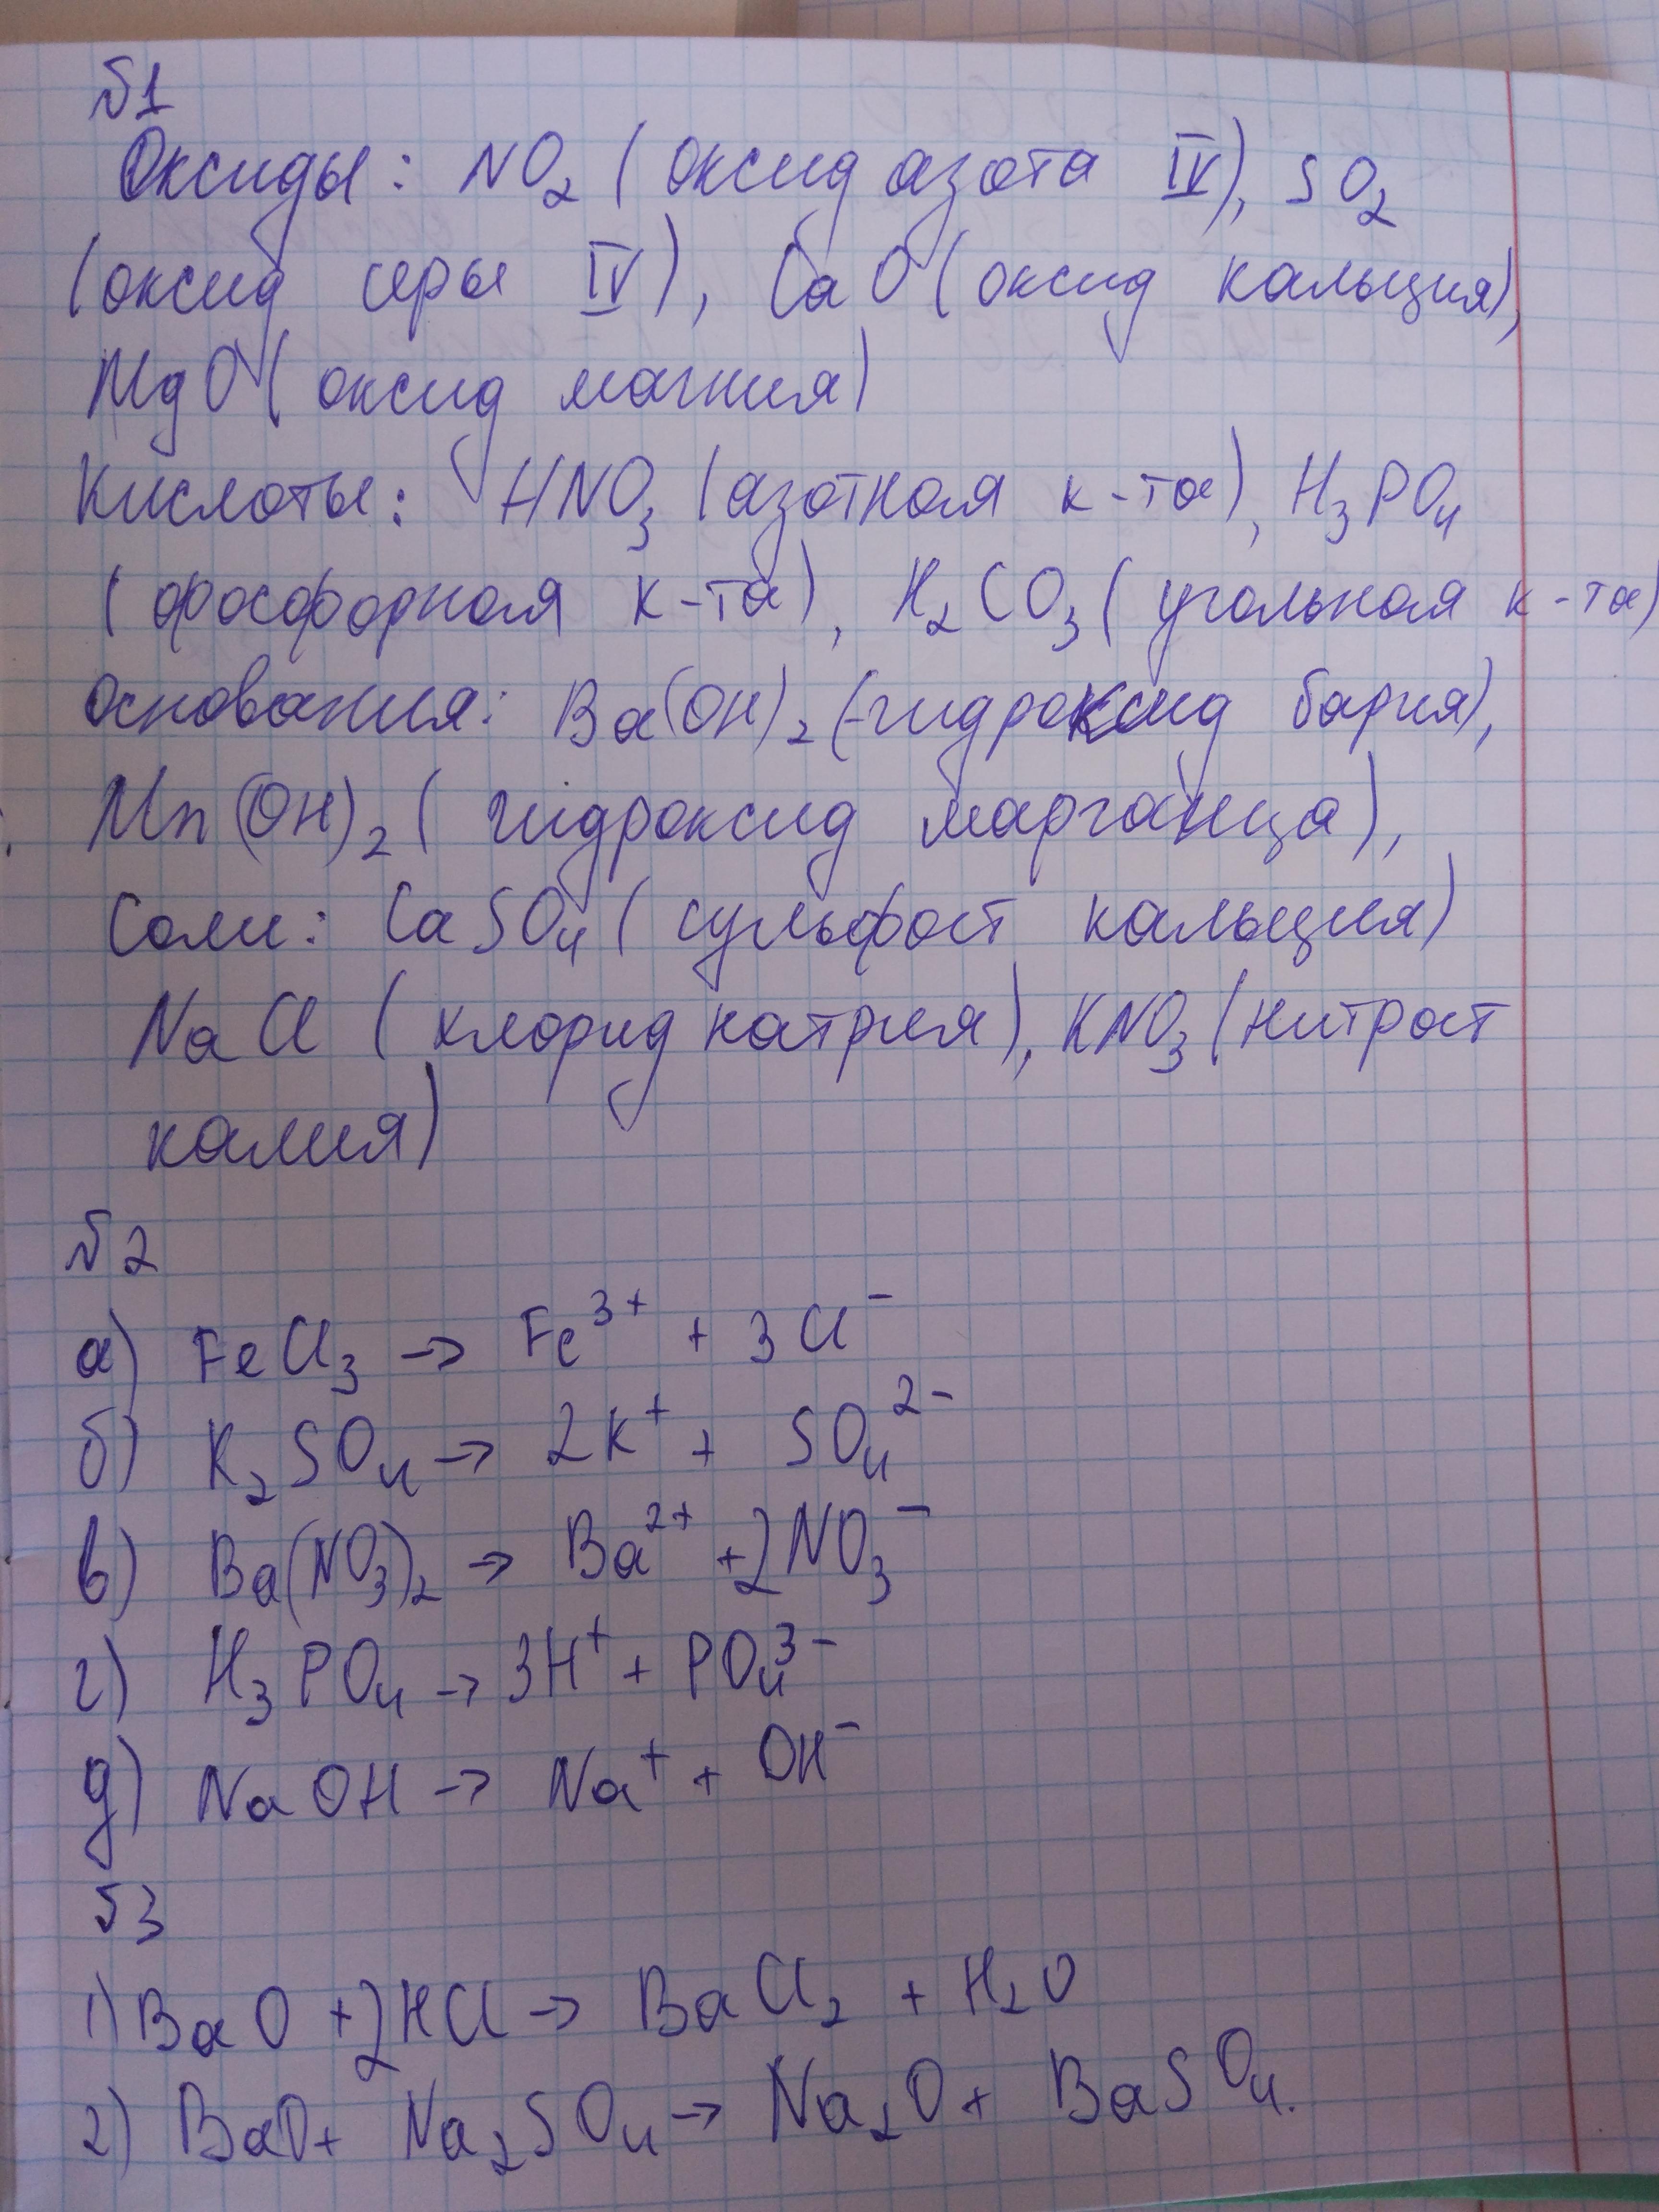 №1
Оксиды: NO₂ (оксид азота IV), SO₂
(оксид серы IV), CaO (оксид кальция),
MgO (оксид магния)
Кислоты: HNO₃ (азотная к-та), H₃PO₄
(фосфорная к-та), H₂CO₃ (угольная к-та)
Основания: Ba(OH)₂ (гидроксид бария),
Mn(OH)₂ (гидроксид марганца),
Соли: CaSO₄ (сульфат кальция)
NaCl (хлорид натрия), KNO₃ (нитрат
калия)
№2
а) FeCl₃ → Fe³⁺ + 3Cl⁻
б) K₂SO₄ → 2K⁺ + SO₄²⁻
в) Ba(NO₃)₂ → Ba²⁺ + 2NO₃⁻
г) H₃PO₄ → 3H⁺ + PO₄³⁻
д) NaOH → Na⁺ + OH⁻
№3
1) BaO + 2HCl → BaCl₂ + H₂O
2) BaO + Na₂SO₄ → Na₂O + BaSO₄.